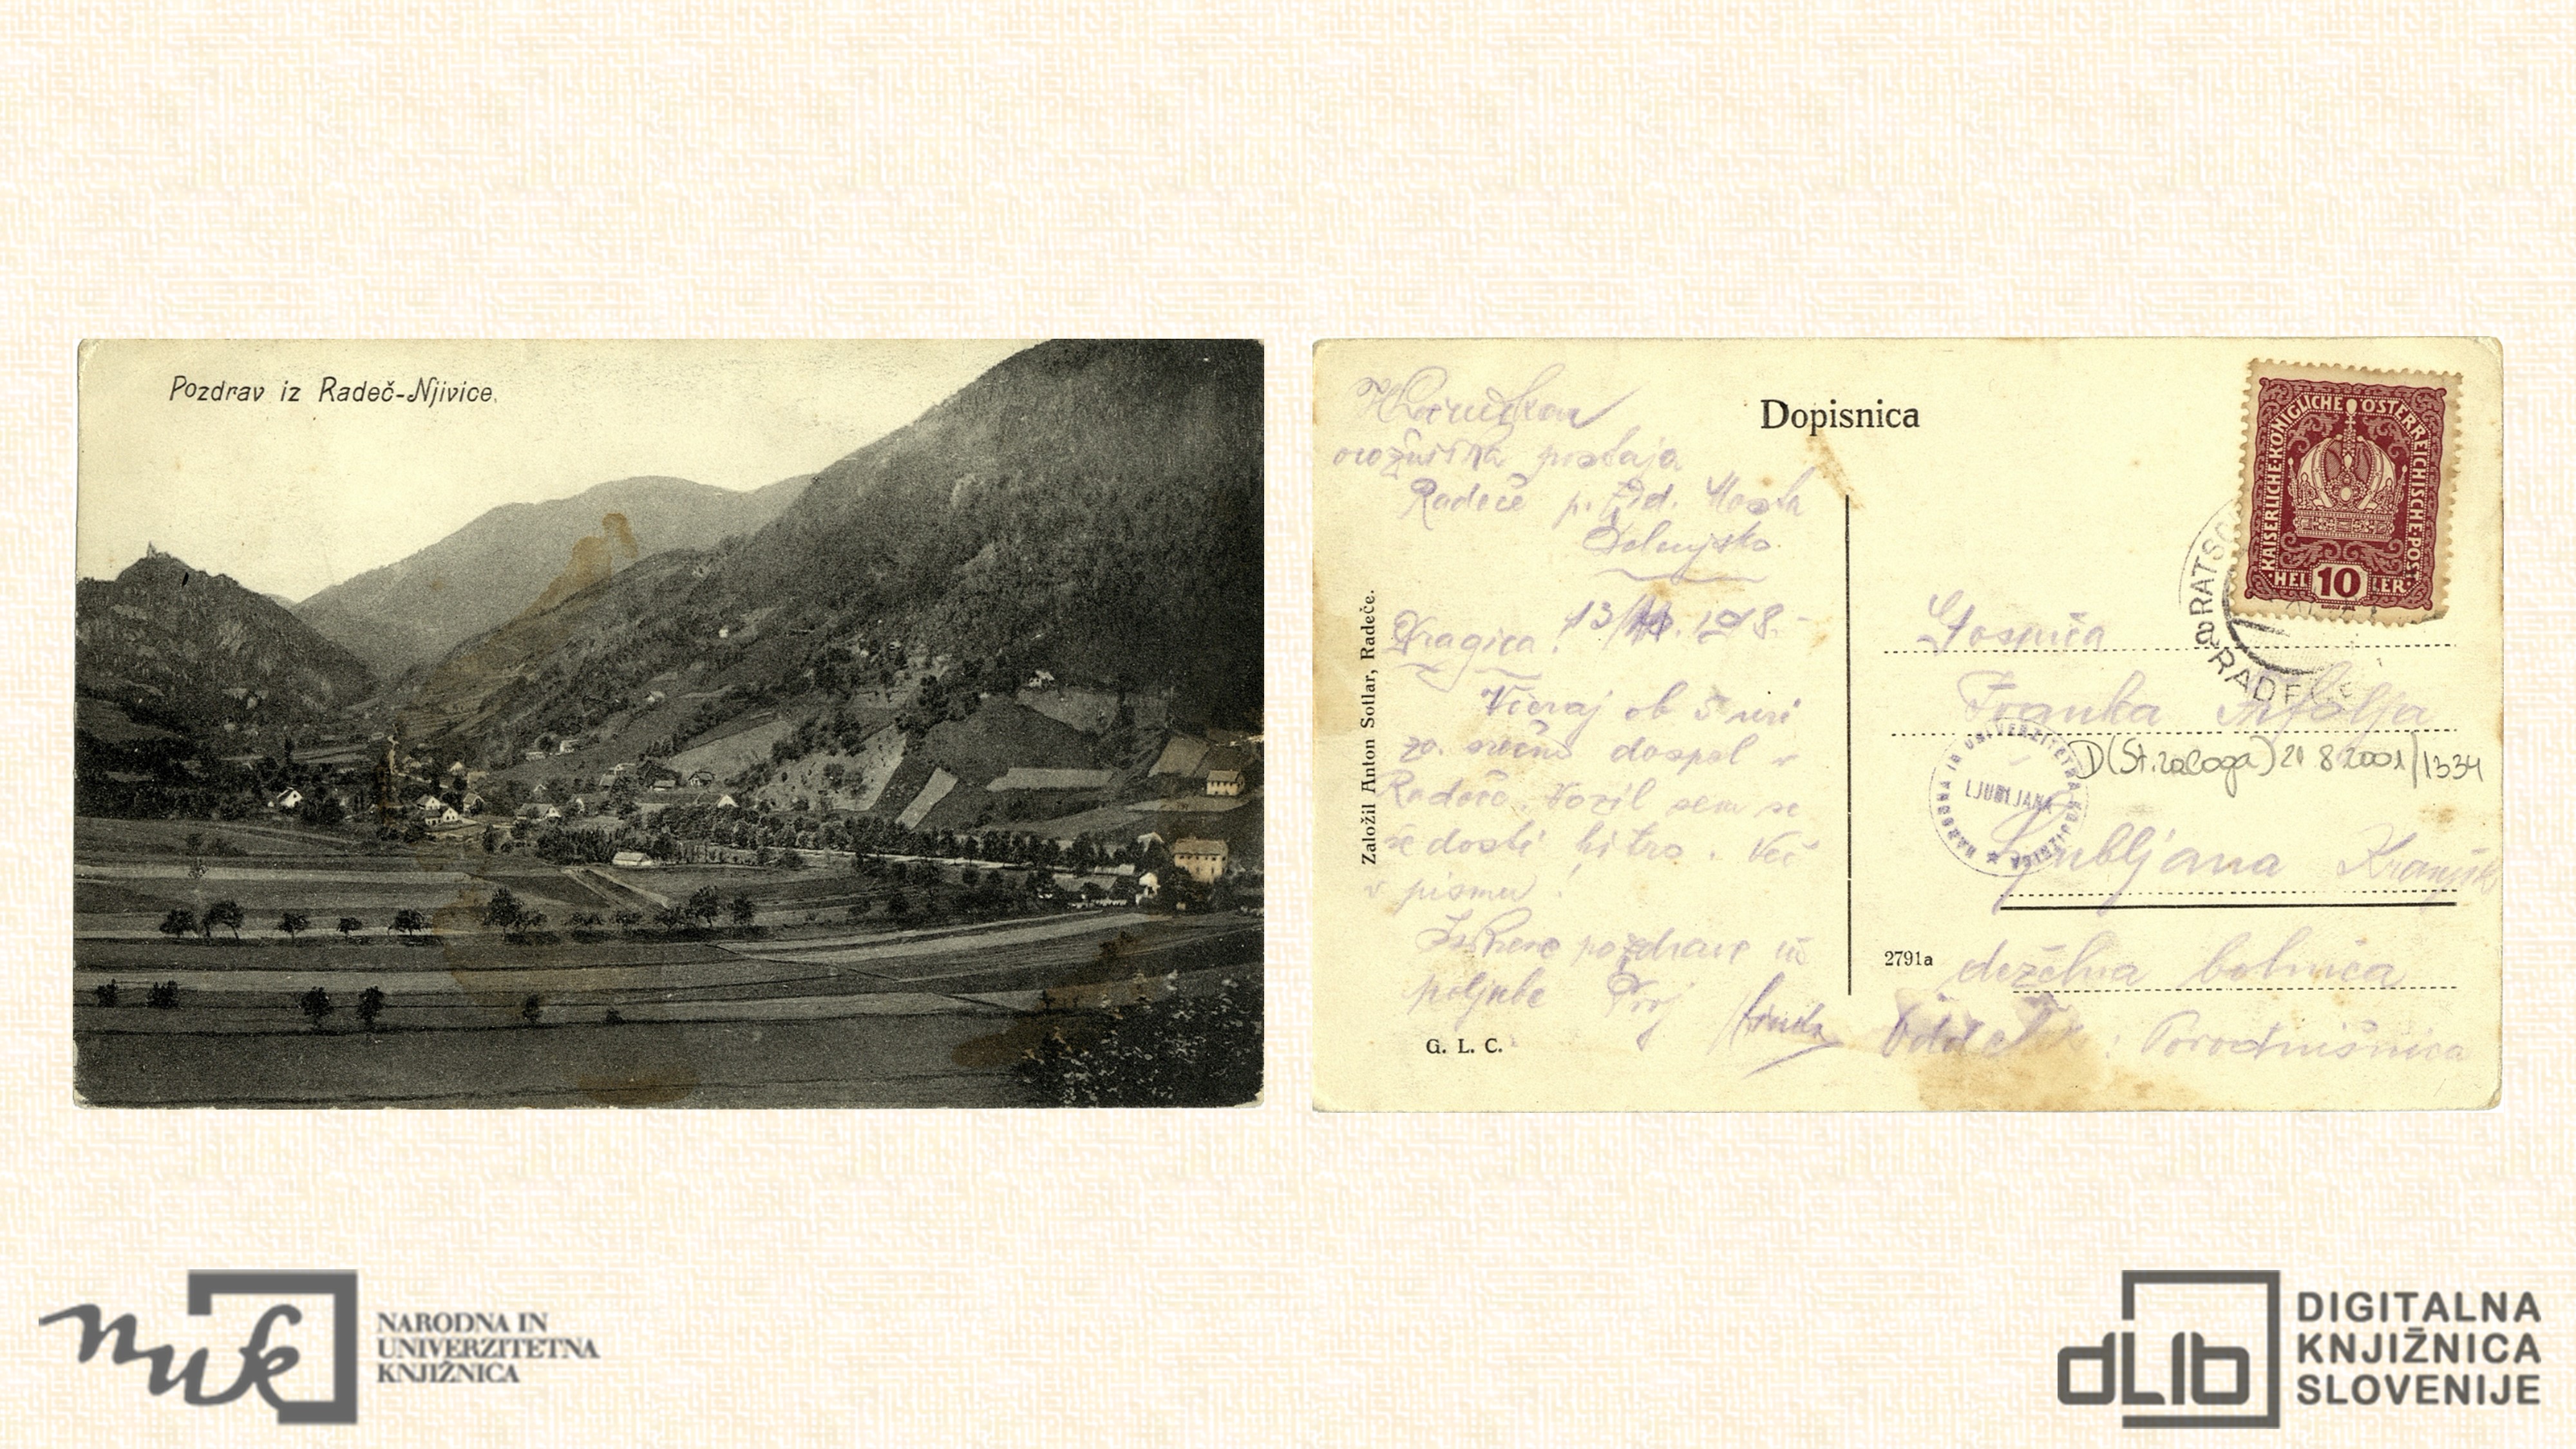 Pozdrav iz Radeč-Njivice.
Dopisnica
KAISERLICHE·KÖNIGLICHE·ÖSTERREICHISCHE·POST
HELLER
10
RATSC
RADEČE
orožniška postaja
Radeče p. Zid. Mostu
Dolenjsko
13/ 1918.-
Dragica!
Včeraj ob 5 uri
zv. srečno dospel v
Radeče. Vozil sem se
še dosti hitro. Več
v pismu!
Iskrene pozdrave in
poljube Tvoj
Založil Anton Sotlar, Radeče.
G. L. C.
Gospica
Franka
D(St. zaloga) 21 8 2001/1334
NARODNA IN UNIVERZITETNA KNJIŽNICA
LJUBLJANA
Ljubljana Kranjsk
2791a
deželna bolnica
: Porodnišnica
nuk
NARODNA IN
UNIVERZITETNA
KNJIŽNICA
dLib
DIGITALNA
KNJIŽNICA
SLOVENIJE